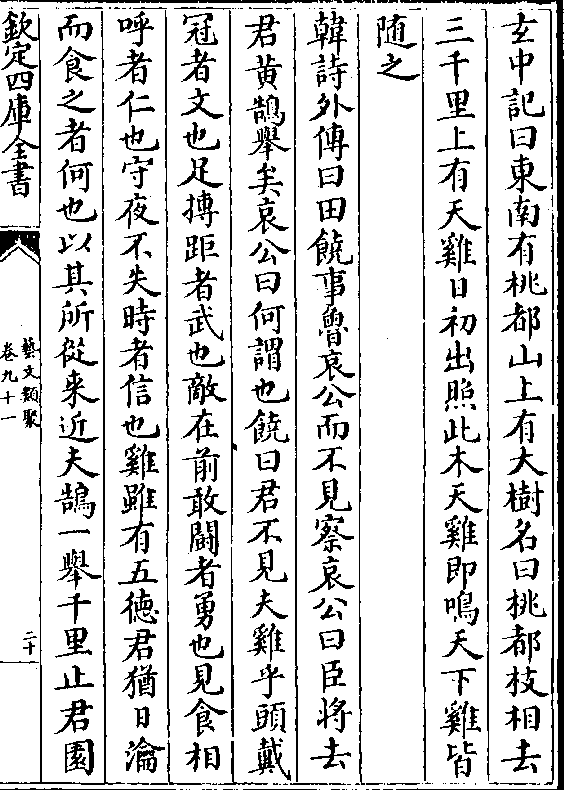 玄中記曰東南有桃都山上有大樹名曰桃都枝相去
三千里上有天雞日初出照此木天雞即鳴天下雞皆
随之
韓詩外傳曰田饒事魯哀公而不見察哀公曰臣將去
君黄鵠舉矣哀公曰何謂也饒曰君不見夫雞乎頭戴
冠者文也足搏距者武也敵在前敢鬭者勇也見食相
呼者仁也守夜不失時者信也雞雖有五徳君猶日瀹
而食之者何也以其所從来近夫鵠一舉千里止君園
欽定四庫全書
藝文類聚
卷九十一
二十